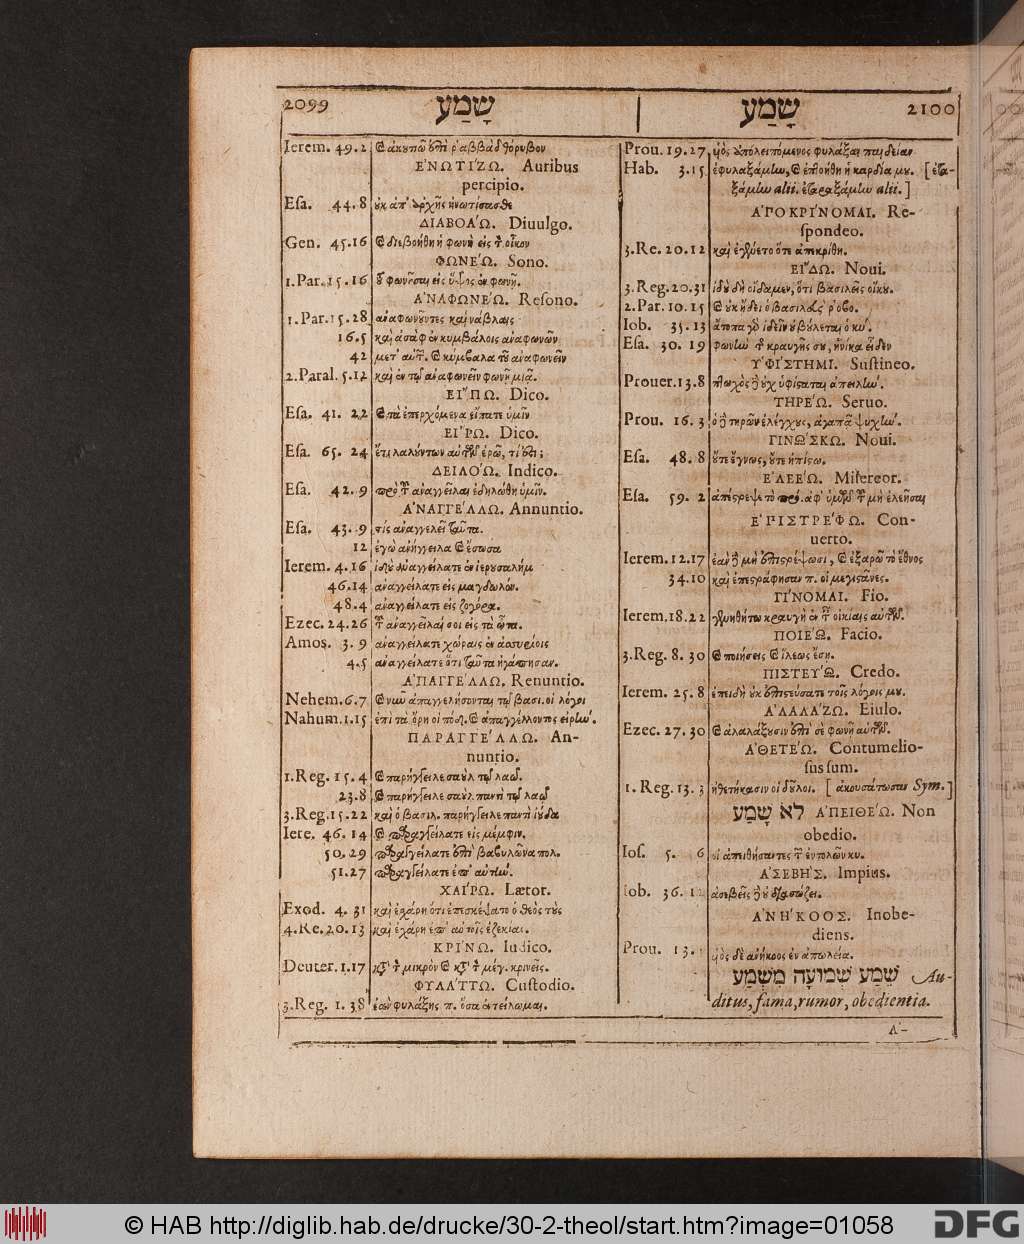 2099 שָׁמַע שָׁמַע 2100
Ierem. 49.2
ἘΝΩΤΊΖΩ. Auribus
percipio.
Esa. 44.8 οὐκ ἀπ' ἀρχῆς ἠνωτίσασθε
ΔΙΑΒΟΆΩ. Diuulgo.
Gen. 45.16 ϗ διεβοήθη ἡ φωνὴ εἰς τ̀ οἶκον
ΦΩΝΈΩ. Sono.
1.Par. 15.16
ἈΝΑΦΩΝΈΩ. Resono.
1.Par. 15.28 ἀναφωνοῦντες καὶ νάβλαις
16.5 καὶ ἀσὰφ ἐν κυμβάλοις ἀναφωνῶν
42 μετ' αὐτ. ϗ κύμβαλα τοῦ ἀναφωνεῖν
2.Paral. 5.12 καὶ ἐν τῷ ἀναφωνεῖν φωνῇ μιᾷ.
ΕἼΠΩ. Dico.
Esa. 41. 22 ϗ τὰ ἐπερχόμενα εἴπατε ὑμῖν
ΕἸΡΩ. Dico.
Esa. 65. 24 ἔτι λαλούντων αὐτῶν ἐρῶ, τί ἐστι;
ΔΕΙΛΟΏ. Indico.
Esa. 42. 9 πρὸ τοῦ ἀναγγεῖλαι ἐδηλώθη ὑμῖν.
ἈΝΑΓΓΈΛΛΩ. Annuntio.
Esa. 43. 9 τίς ἀναγγελεῖ ταῦτα.
12 ἐγὼ ἀνήγγειλα ϗ ἔσωσα
Ierem. 4.16 ἰδοὺ ἀναγγείλατε ἐν ἱερουσαλήμ
46.14 ἀναγγείλατε εἰς μαγδωλόν.
48.4 ἀναγγείλατε εἰς ζογόρα.
Ezec. 24.26 τοῦ ἀναγγεῖλαί σοι εἰς τὰ ὦτα.
Amos. 3. 9 ἀναγγείλατε χώραις ἐν ἀσσυρίοις
4.5 ἀναγγείλατε ὅτι ταῦτα ἠγάπησαν.
ἈΠΑΓΓΈΛΛΩ. Renuntio.
Nehem. 6.7 ϗ νῦν ἀπαγγελήσονται τῷ βασι. οἱ λόγοι
Nahum. 1.15 ἐπὶ τὰ ὄρη οἱ πόδ. ϗ ἀπαγγέλλοντος εἰρήν.
ΠΑΡΑΓΓΈΛΛΩ. An-
nuntio.
1.Reg. 15.4 ϗ παρήγγειλε σαοὺλ τῷ λαῷ.
23.8 ϗ παρήγγειλε σαοὺλ παντὶ τῷ λαῷ
3.Reg. 15.22 καὶ ὁ βασιλ. παρήγγειλε παντὶ ἰούδα
Iere. 46. 14 ϗ παραγγείλατε εἰς μέμφιν.
50.29 παραγγείλατε ἐπὶ βαβυλῶνα πολ.
51.27 παραγγείλατε ἐπ' αὐτήν.
ΧΑΊΡΩ. Lætor.
Exod. 4. 31 καὶ ἐχάρη ὅτι ἐπεσκέψατο ὁ θεὸς τοὺς
4.Re. 20.13 καὶ ἐχάρη ἐπ' αὐτοῖς ἐζεκίας.
ΚΡΊΝΩ. Iudico.
Deuter. 1.17 κατὰ τ̀ μικρὸν ϗ κατὰ τ̀ μέγ. κρινεῖς.
ΦΥΛΆΤΤΩ. Custodio.
3.Reg. 1. 38 ἐὰν φυλάξῃς π. ὅσα ἐντείλωμαι.
Prou. 19.27 υἱὸς ὑπολειπόμενος φυλάξαι παιδείαν
Hab. 3.15 ἐφυλαξάμην, ϗ ἐπτοήθη ἡ καρδία μου. [ἐτα-
ξάμην alii. ἐταραξάμην alii.]
ἈΠΟΚΡΊΝΟΜΑΙ. Re-
spondeo.
3.Re. 20.12 καὶ ἐγένετο ὅτε ἀπεκρίθη.
ΕἼΔΩ. Noui.
3.Reg. 20.31 ἰδοὺ δὴ οἴδαμεν, ὅτι βασιλεῖς οἴκου.
2.Par. 10.15
Iob. 35.13 ἄτοπα γὰρ ἰδεῖν οὐ βούλεται ὁ κύ.
Esa. 30. 19 φωνὴν τ̀ κραυγῆς σου, ἡνίκα εἶδεν
ὙΦΊΣΤΗΜΙ. Sustineo.
Prouer. 13.8 πτωχὸς δὲ οὐχ ὑφίσταται ἀπειλήν.
ΤΗΡΈΩ. Seruo.
Prou. 16.3 ὁ δὲ τηρῶν ἐλέγχους, ἀγαπᾷ ψυχήν.
ΓΙΝΏΣΚΩ. Noui.
Esa. 48. 8 οὔτε ἔγνως, οὔτε ἠπίστω.
ἘΛΕΈΩ. Misereor.
Esa. 59. 2 ἀπέστρεψε τὸ πρό. ἀφ' ὑμῶν τοῦ μὴ ἐλεῆσαι
ἘΠΙΣΤΡΈΦΩ. Con-
uerto.
Ierem. 12.17 ἐὰν δὲ μὴ ἐπιστρέψωσι, ϗ ἐξαρῶ τὸ ἔθνος
34.10 καὶ ἐπεστράφησαν π. οἱ μεγιστᾶνες.
ΓΊΝΟΜΑΙ. Fio.
Ierem. 18.22 γενηθήτω κραυγὴ ἐν τ̀ οἰκίαις αὐτῶν.
ΠΟΙΈΩ. Facio.
3.Reg. 8.30 ϗ ποιήσεις ϗ ἵλεως ἔσῃ.
ΠΙΣΤΕΎΩ. Credo.
Ierem. 25.8 ἐπειδὴ οὐκ ἐπιστεύσατε τοῖς λόγοις μου.
ἈΛΑΛΆΖΩ. Eiulo.
Ezec. 27.30 ϗ ἀλαλάξουσιν ἐπὶ σὲ φωνῇ αὐτῶν.
ἈΘΕΤΈΩ. Contumelio-
sus sum.
1. Reg. 13. 3 ἠθετήκασιν οἱ δοῦλοι. [ἀκουσάτωσαν Sym.]
לֹא שָׁמַע ἈΠΕΙΘΈΩ. Non
obedio.
Ios. 5. 6 οἱ ἀπειθήσαντες τ̀ ἐντολῶν κυ.
ἈΣΕΒΉΣ. Impius.
Iob. 36. 1 ἀσεβεῖς δὲ οὐ διασώζει.
ἈΝΉΚΟΟΣ. Inobe-
diens.
Prou. 13. υἱὸς δὲ ἀνήκοος ἐν ἀπωλείᾳ.
שֵׁמַע שְׁמוּעָה מִשְׁמַע Au-
ditus, fama, rumor, obedientia.
Α-
© HAB http://diglib.hab.de/drucke/30-2-theol/start.htm?image=01058
DFG